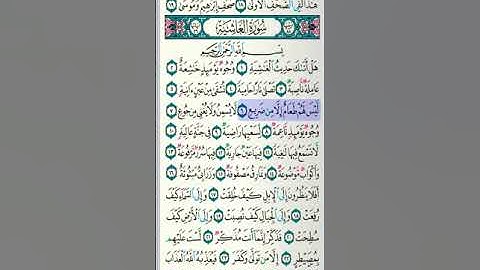 هَٰذَا لَفِي ٱلصُّحُفِ ٱلْأُولَىٰ ١٨ صُحُفِ إِبْرَٰهِيمَ وَمُوسَىٰ ١٩
سُورَةُ الغَاشِيَةِ
بِسْمِ ٱللَّهِ ٱلرَّحْمَٰنِ ٱلرَّحِيمِ
هَلْ أَتَىٰكَ حَدِيثُ ٱلْغَٰشِيَةِ ١ وُجُوهٌ يَوْمَئِذٍ خَٰشِعَةٌ ٢
عَامِلَةٌ نَّاصِبَةٌ ٣ تَصْلَىٰ نَارًا حَامِيَةً ٤ تُسْقَىٰ مِنْ عَيْنٍ ءَانِيَةٍ ٥
لَّيْسَ لَهُمْ طَعَامٌ إِلَّا مِن ضَرِيعٍ ٦ لَّا يُسْمِنُ وَلَا يُغْنِي مِن جُوعٍ ٧
وُجُوهٌ يَوْمَئِذٍ نَّاعِمَةٌ ٨ لِّسَعْيِهَا رَاضِيَةٌ ٩ فِي جَنَّةٍ عَالِيَةٍ ١٠
لَّا تَسْمَعُ فِيهَا لَٰغِيَةً ١١ فِيهَا عَيْنٌ جَارِيَةٌ ١٢ فِيهَا سُرُرٌ مَّرْفُوعَةٌ ١٣
وَأَكْوَابٌ مَّوْضُوعَةٌ ١٤ وَنَمَارِقُ مَصْفُوفَةٌ ١٥ وَزَرَابِيُّ مَبْثُوثَةٌ ١٦
أَفَلَا يَنظُرُونَ إِلَى ٱلْإِبِلِ كَيْفَ خُلِقَتْ ١٧ وَإِلَى ٱلسَّمَآءِ كَيْفَ
رُفِعَتْ ١٨ وَإِلَى ٱلْجِبَالِ كَيْفَ نُصِبَتْ ١٩ وَإِلَى ٱلْأَرْضِ كَيْفَ
سُطِحَتْ ٢٠ فَذَكِّرْ إِنَّمَآ أَنتَ مُذَكِّرٌ ٢١ لَّسْتَ عَلَيْهِم
بِمُصَيْطِرٍ ٢٢ إِلَّا مَن تَوَلَّىٰ وَكَفَرَ ٢٣ فَيُعَذِّبُهُ ٱللَّهُ ٱلْعَذَابَ